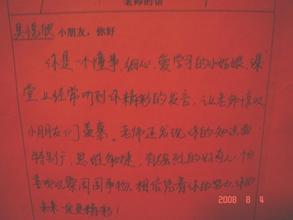 老师的话
小朋友，你好
你是一个懂事、细心、爱学习的小姑娘，课
堂上经常听到你精彩的发言，让老师
小朋友们羡慕。老师还发现你的知识面
特别广，思维敏捷，
观察周围事物。相信凭着你的努力，你的
未来会更精彩！
2008 8 4